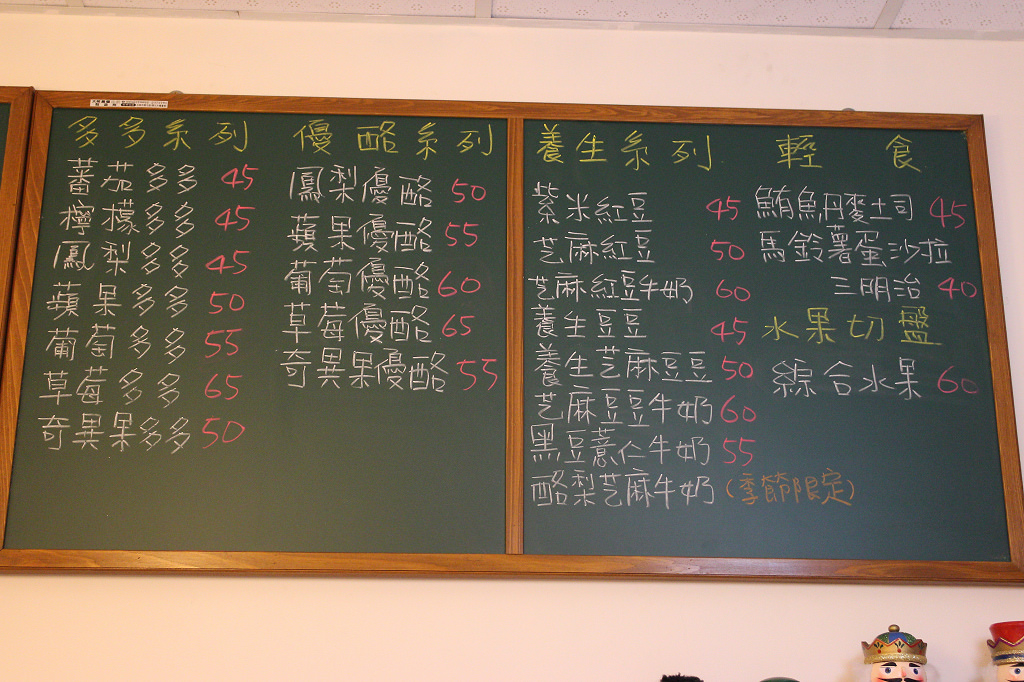 多多系列
蕃茄多多 45
檸檬多多 45
鳳梨多多 45
蘋果多多 50
葡萄多多 55
草莓多多 65
奇異果多多 50
優酪系列
鳳梨優酪 50
蘋果優酪 55
葡萄優酪 60
草莓優酪 65
奇異果優酪 55
養生系列
紫米紅豆 45
芝麻紅豆 50
芝麻紅豆牛奶 60
養生豆豆 45
養生芝麻豆豆 50
芝麻豆豆牛奶 60
黑豆薏仁牛奶 55
酪梨芝麻牛奶(季節限定)
輕食
鮪魚丹麥土司 45
馬鈴薯蛋沙拉
三明治 40
水果切盤
綜合水果 60